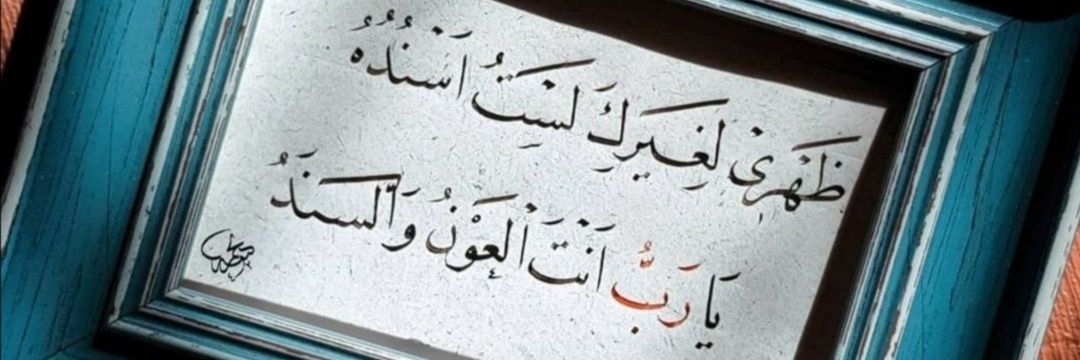 ظَهْرِيْ لِغَيرِكَ لَسْتُ اَسْنُدُهُ
يَا رَبُّ اَنْتَ الْعَوْنُ وَالسَّنَدُ